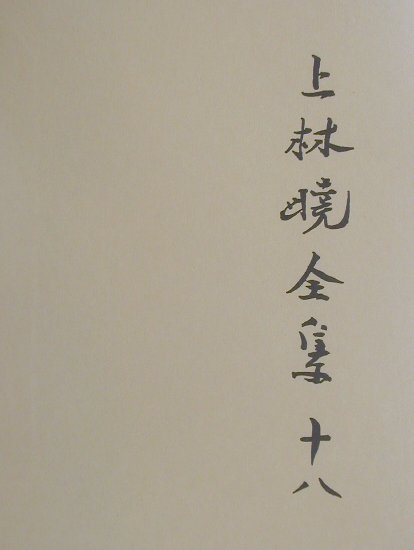 上林暁全集 十八